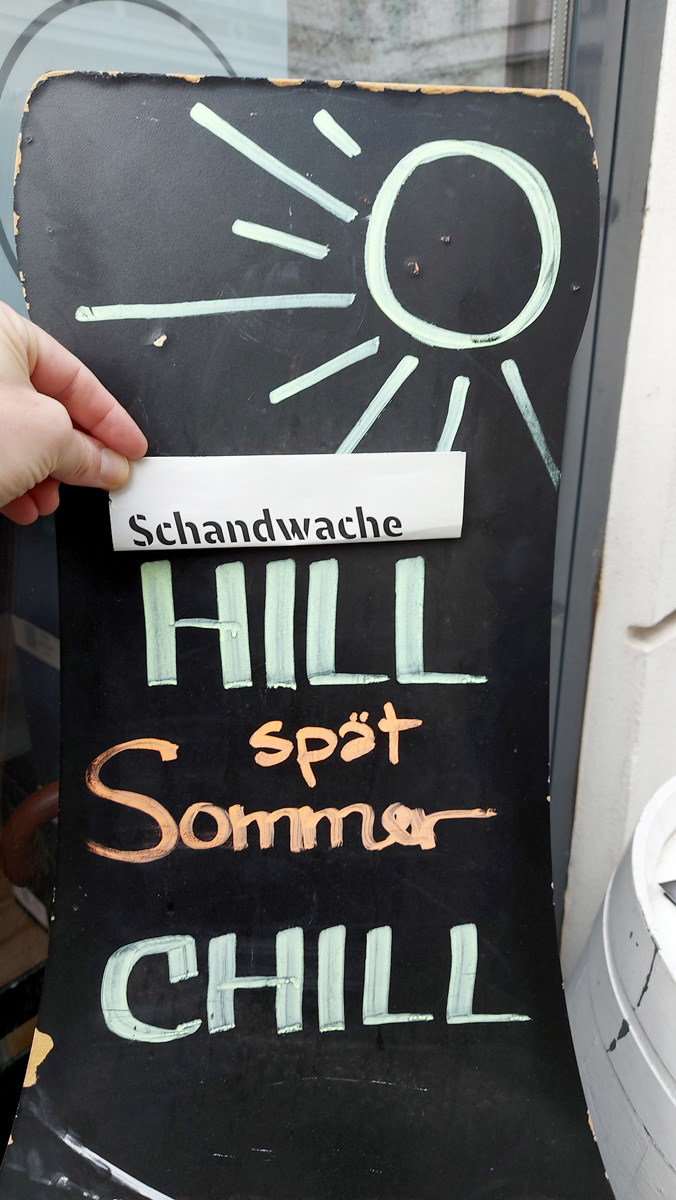 Schandwache
HILL
spät
Sommer
CHILL